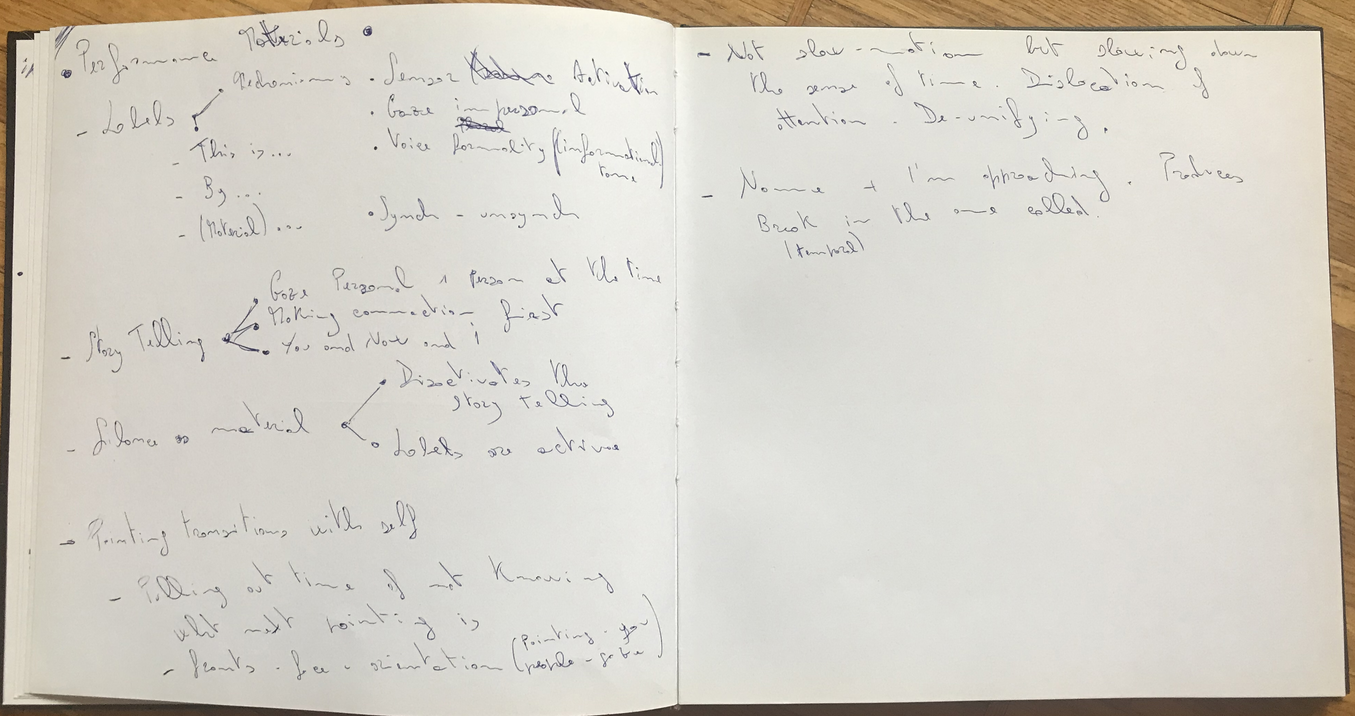 • Performance Materials •
- Labels
Mechanisms
• Sensor Activation
• Gaze impersonal
• Voice formality (informational tone)
- This is...
- By...
- (Material)...
• Synch - unsynch
- Story Telling
• Gaze Personal 1 Person at the time
• Making connection first
• You and Now and I
- Silence as material
• Disactivates the
story telling
• Labels are active
- Pointing transitions with self
- Pulling out time of not knowing
what next pointing is
- fronts - face - orientation (pointing - you
people - gaze)
- Not slow-motion but slowing down
the sense of time. Dislocation of
attention. De-unifying.
- Name + I'm approaching. Produces
Break in the one called.
(temporal)